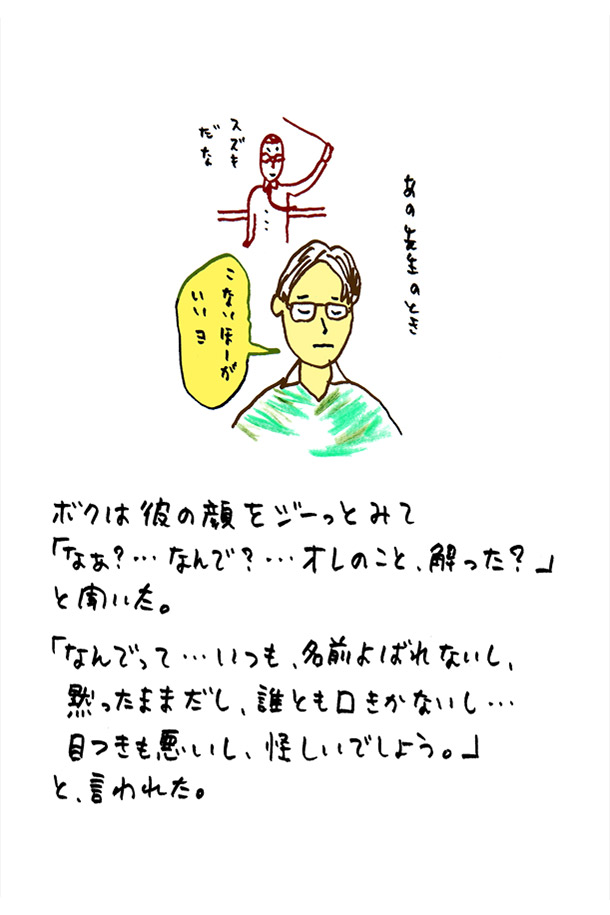 あの先生のとき
スズキ
だな
こないほーが
いいヨ
ボクは彼の顔をジーっとみて
「なぁ？…なんで？…オレのこと、解った？」
と聞いた。
「なんでって…いつも、名前よばれないし、
黙ったままだし、誰とも口きかないし…
目つきも悪いし、怪しいでしょう。」
と、言われた。